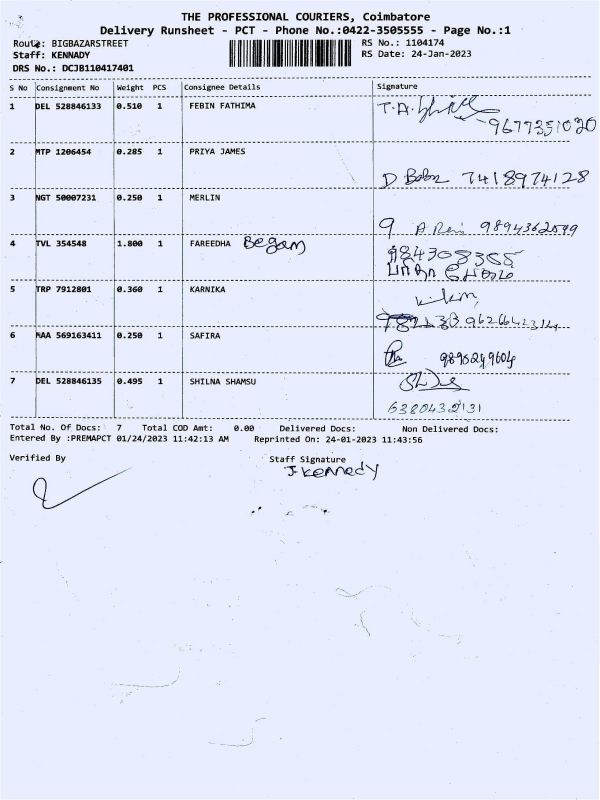 THE PROFESSIONAL COURIERS, Coimbatore
Delivery Runsheet - PCT - Phone No.:0422-3505555 - Page No.:1
Route: BIGBAZARSTREET
RS No.: 1104174
Staff: KENNADY
RS Date: 24-Jan-2023
DRS No.: DCJB110417401
S No Consignment No Weight PCS Consignee Details Signature
1 DEL 528846133 0.510 1 FEBIN FATHIMA T.A.
9677351020
2 MTP 1206454 0.285 1 PRIYA JAMES
D Babu 7418974128
3 NGT 50007231 0.250 1 MERLIN
9894362599
4 TVL 354548 1.800 1 FAREEDHA Begam
984308355
5 TRP 7912801 0.360 1 KARNIKA
9626642314
6 MAA 569163411 0.250 1 SAFIRA
9895249604
7 DEL 528846135 0.495 1 SHILNA SHAMSU
6380432131
Total No. Of Docs: 7 Total COD Amt: 0.00 Delivered Docs: Non Delivered Docs:
Entered By :PREMAPCT 01/24/2023 11:42:13 AM Reprinted On: 24-01-2023 11:43:56
Verified By Staff Signature
J. Kennedy